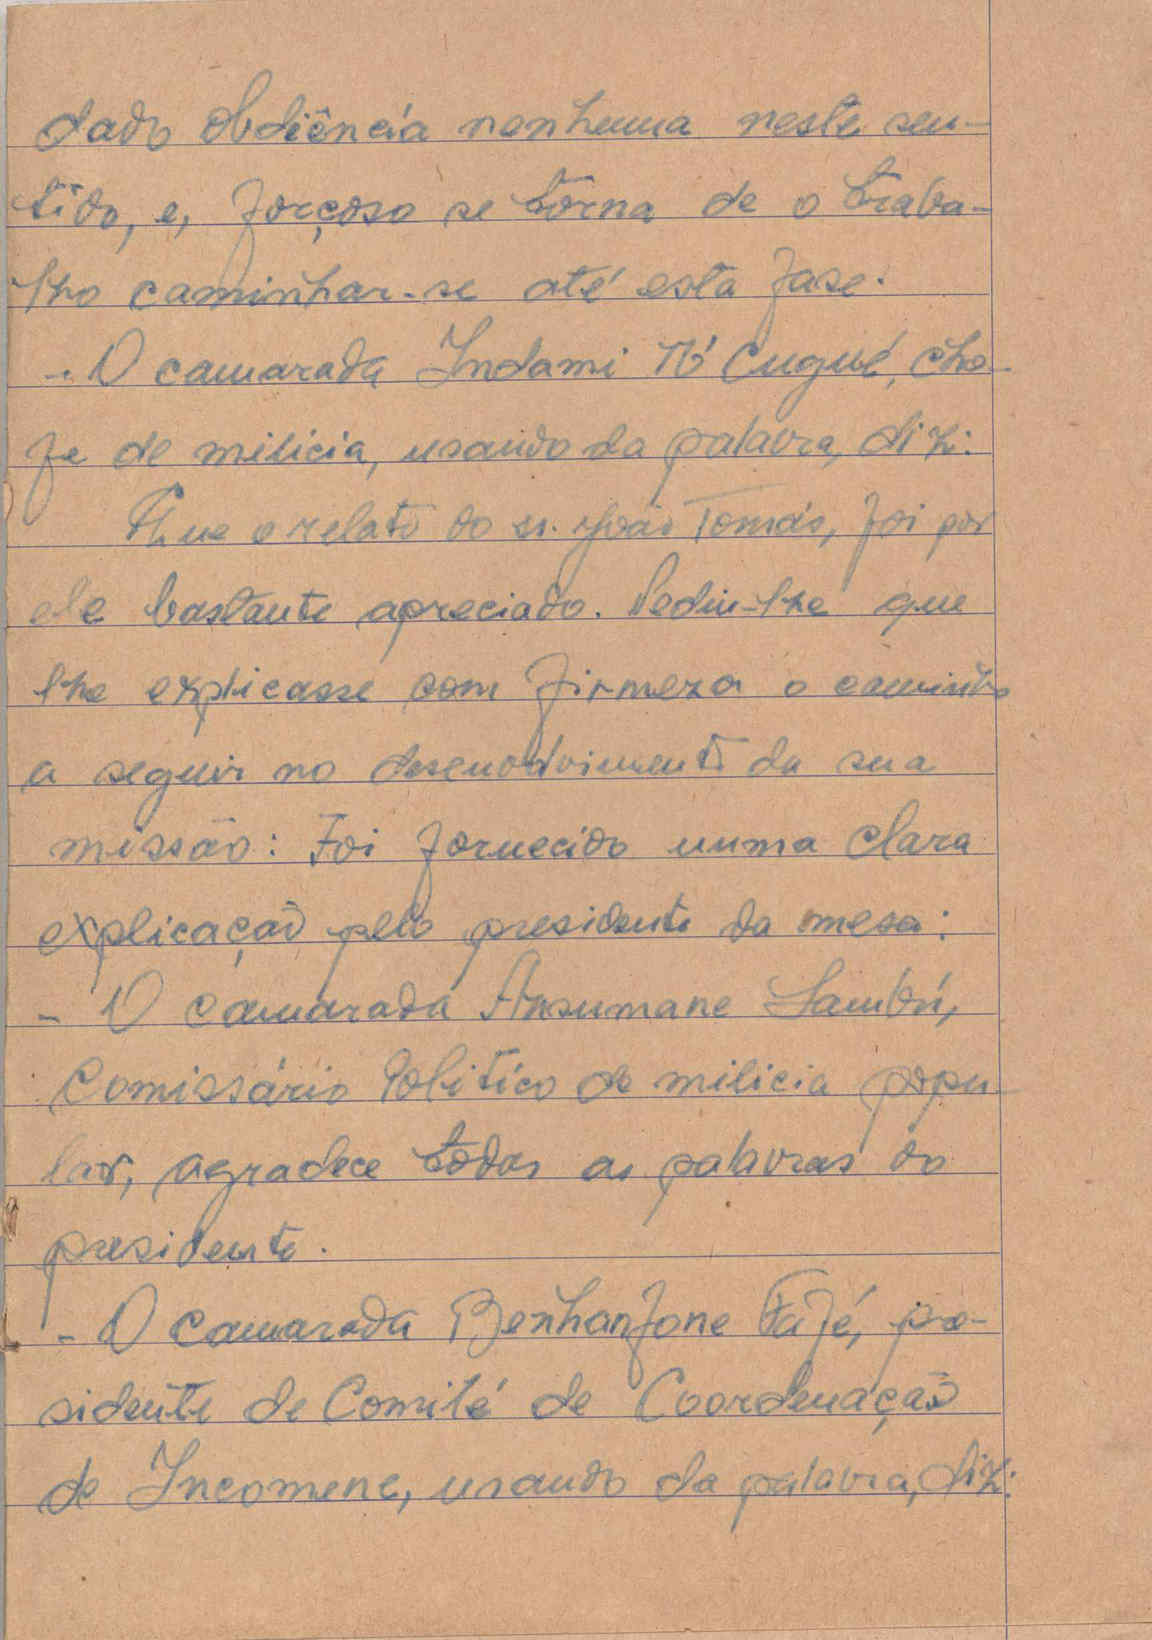 dado obdiência nenhuma neste sen-
tido, e, forçoso se torna de o traba-
lho caminhar-se até esta fase.
- O camarada Indami N'Cugué, che-
fe de milicia, usando da palavra, diz:
Que o relato do sr. João Tomás, foi por
ele bastante apreciado. Pediu-lhe que
lhe explicasse com firmeza o caminho
a seguir no desenvolvimento da sua
missão: Foi fornecido numa clara
explicação pelo presidente da mesa:
- O camarada Ansumane Sambú,
Comissário Politico de milicia popu-
lar, agradece todas as palavras do
presidente.
- O camarada Benhanfone Fafé, pre-
sidente de Comité de Coordenação
de Incomene, usando da palavra, diz: